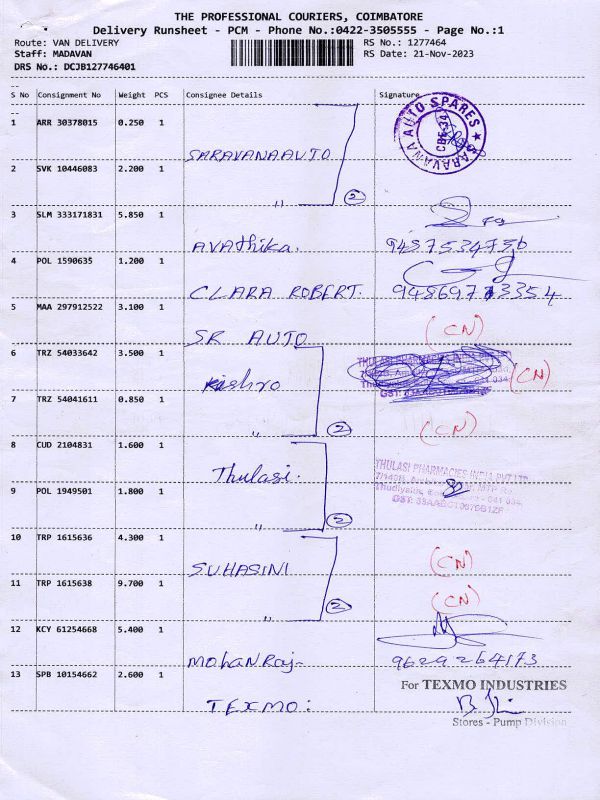 THE PROFESSIONAL COURIERS, COIMBATORE
Delivery Runsheet - PCM - Phone No.:0422-3505555 - Page No.:1
Route: VAN DELIVERY RS No.: 1277464
Staff: MADAVAN RS Date: 21-Nov-2023
DRS No.: DCJB127746401
S No Consignment No Weight PCS Consignee Details Signature
1 ARR 30378015 0.250 1 SARAVANA AUTO
SARAVANA AUTO SPARES ★ CBE-34
2 SVK 10446083 2.200 1 " 2
3 SLM 333171831 5.850 1 AVAthika. 9487534756
4 POL 1590635 1.200 1 CLARA ROBERT.
5 MAA 297912522 3.100 1 SR AUTO (CN)
6 TRZ 54033642 3.500 1 Kishro (CN)
7 TRZ 54041611 0.850 1 " 2 (CN)
8 CUD 2104831 1.600 1 Thulasi.
THULASI PHARMACIES INDIA PVT LTD
9 POL 1949501 1.800 1 " 2
10 TRP 1615636 4.300 1 SUHASINI (CN)
11 TRP 1615638 9.700 1 2 (CN)
12 KCY 61254668 5.400 1 MohanRaj- 9629264173
13 SPB 10154662 2.600 1 TEXMO:
For TEXMO INDUSTRIES
Stores - Pump Division